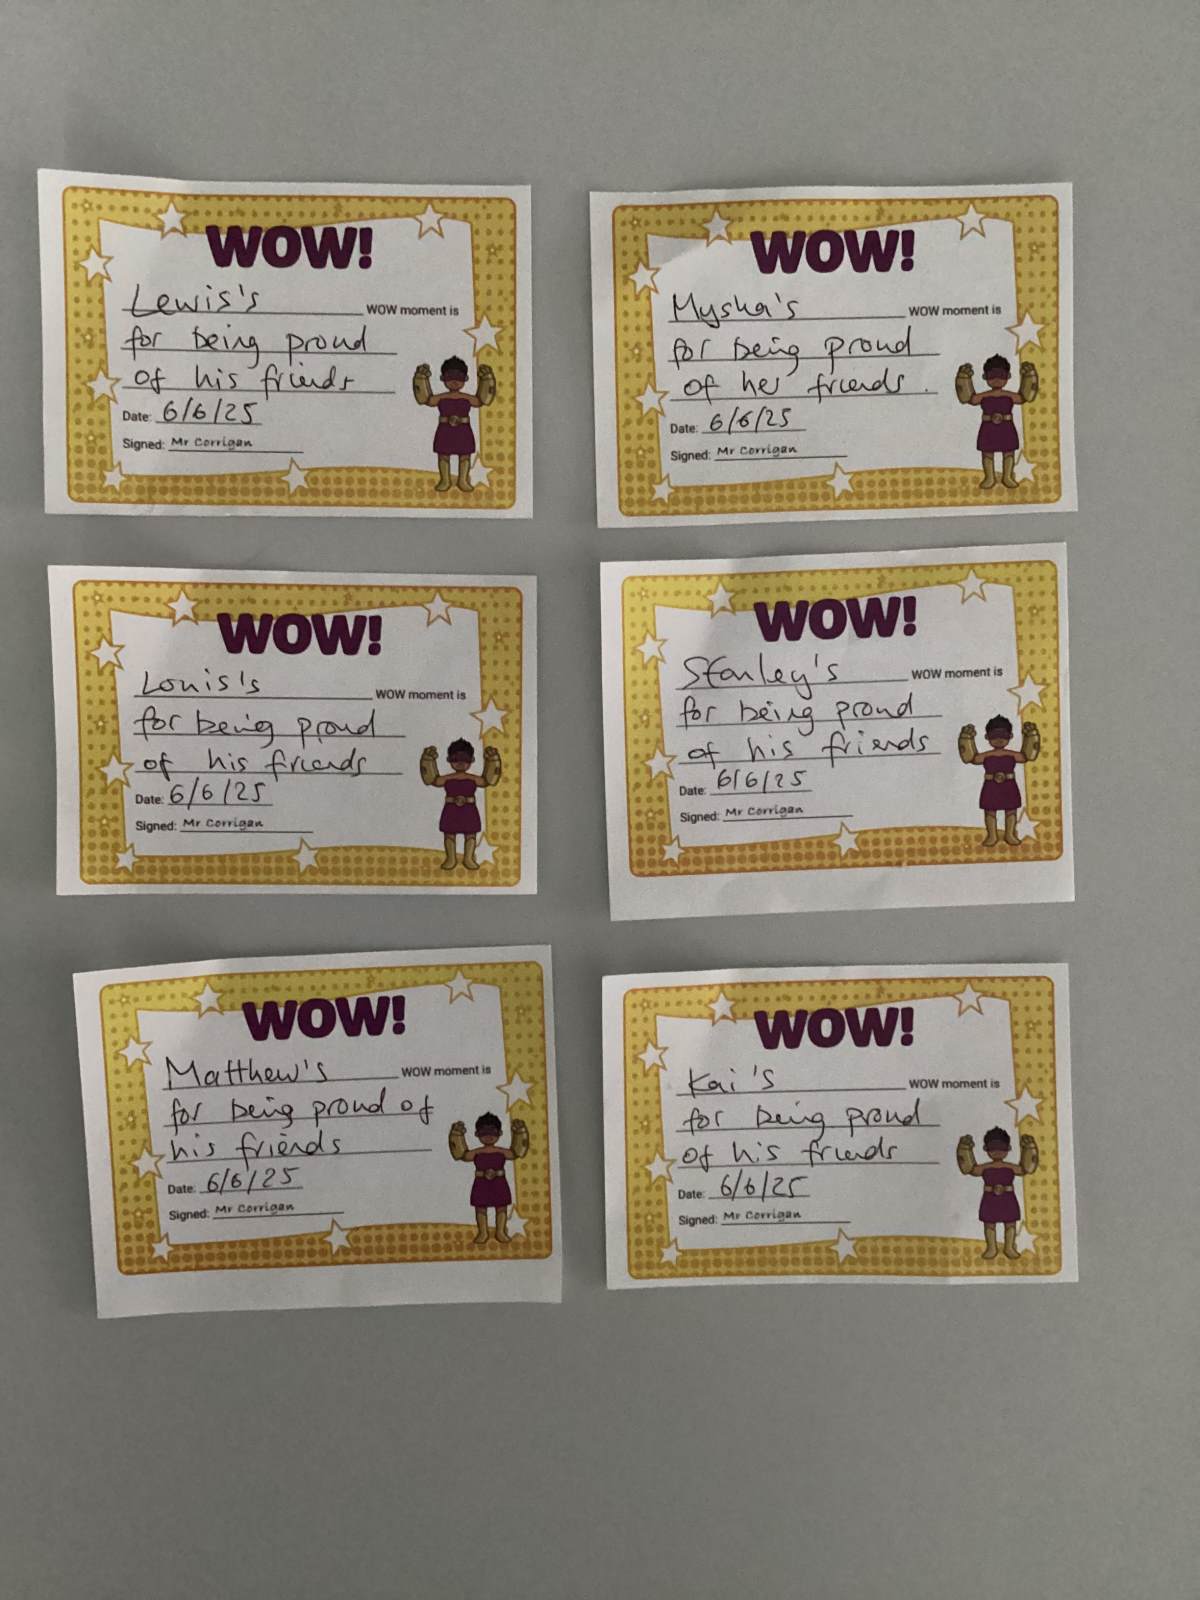 WOW!
Lewis's WOW moment is
for being proud
of his friends
Date: 6/6/25
Signed: Mr Corrigan
WOW!
Mysha's WOW moment is
for being proud
of her friends.
Date: 6/6/25
Signed: Mr Corrigan
WOW!
Louis's WOW moment is
for being proud
of his friends
Date: 6/6/25
Signed: Mr Corrigan
WOW!
Stanley's WOW moment is
for being proud
of his friends
Date: 6/6/25
Signed: Mr Corrigan
WOW!
Matthew's WOW moment is
for being proud of
his friends
Date: 6/6/25
Signed: Mr Corrigan
WOW!
Kai's WOW moment is
for being proud
of his friends
Date: 6/6/25
Signed: Mr Corrigan